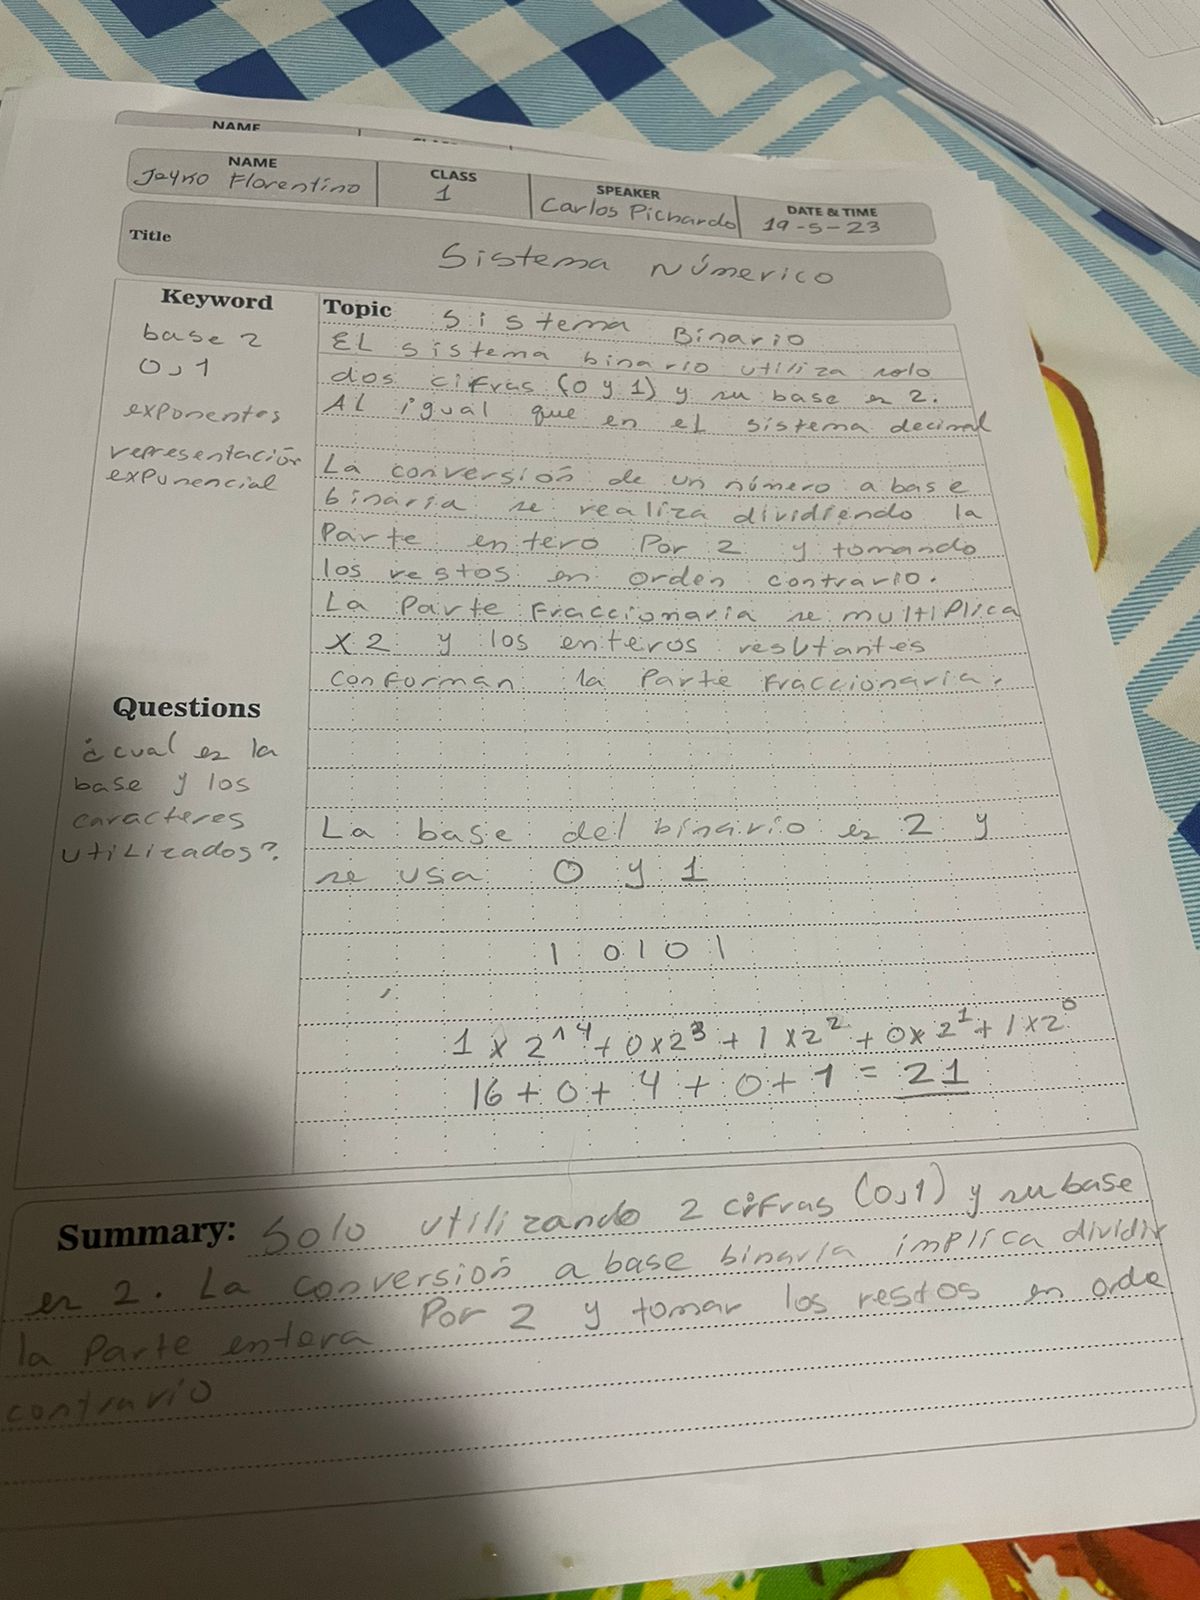 NAME
NAME
Jayko Florentino
CLASS
1
SPEAKER
Carlos Pichardo
DATE & TIME
19-5-23
Title
Sistema Númerico
Keyword
base 2
0,1
exponentes
representación
exponencial
Topic Sistema Binario
EL sistema binario utiliza solo
dos cifras (0 y 1) y su base es 2.
AL igual que en el sistema decimal
La conversión de un número a base
binaria se realiza dividiendo la
Parte entero Por 2 y tomando
los restos en orden contrario.
La Parte Fraccionaria se multiplica
x2 y los enteros resultantes
conforman la Parte Fraccionaria.
Questions
¿cual es la
base y los
caracteres
utilizados?
La base del binario es 2 y
se usa 0 y 1
10101
1 x 2^4 + 0x2^3 + 1x2^2 + 0x2^1 + 1x2^0
16 + 0 + 4 + 0 + 1 = 21
Summary: Solo utilizando 2 cifras (0,1) y su base
es 2. La conversión a base binaria implica dividir
la Parte entera Por 2 y tomar los restos en orde
contrario